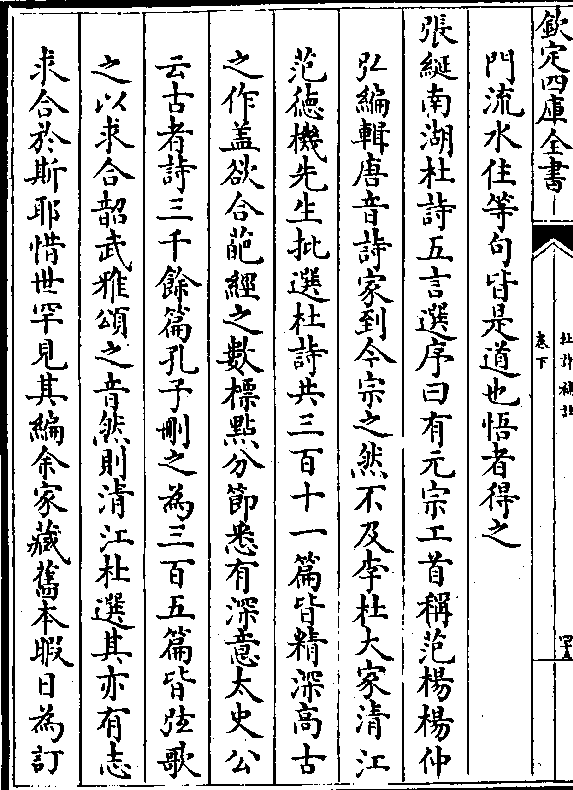 欽定四庫全書
杜詩攟
卷下
四十五
門流水住等句皆是道也悟者得之
張綖南湖杜詩五言選序曰有元宗工首稱范楊楊仲
弘編輯唐音詩家到今宗之然不及李杜大家清江
范德機先生批選杜詩共三百十一篇皆精深高古
之作蓋欲合葩經之數標點分節悉有深意太史公
云古者詩三千餘篇孔子刪之為三百五篇皆弦歌
之以求合韶武雅頌之音然則清江杜選其亦有志
求合於斯耶惜世罕見其編余家藏舊本暇日為訂